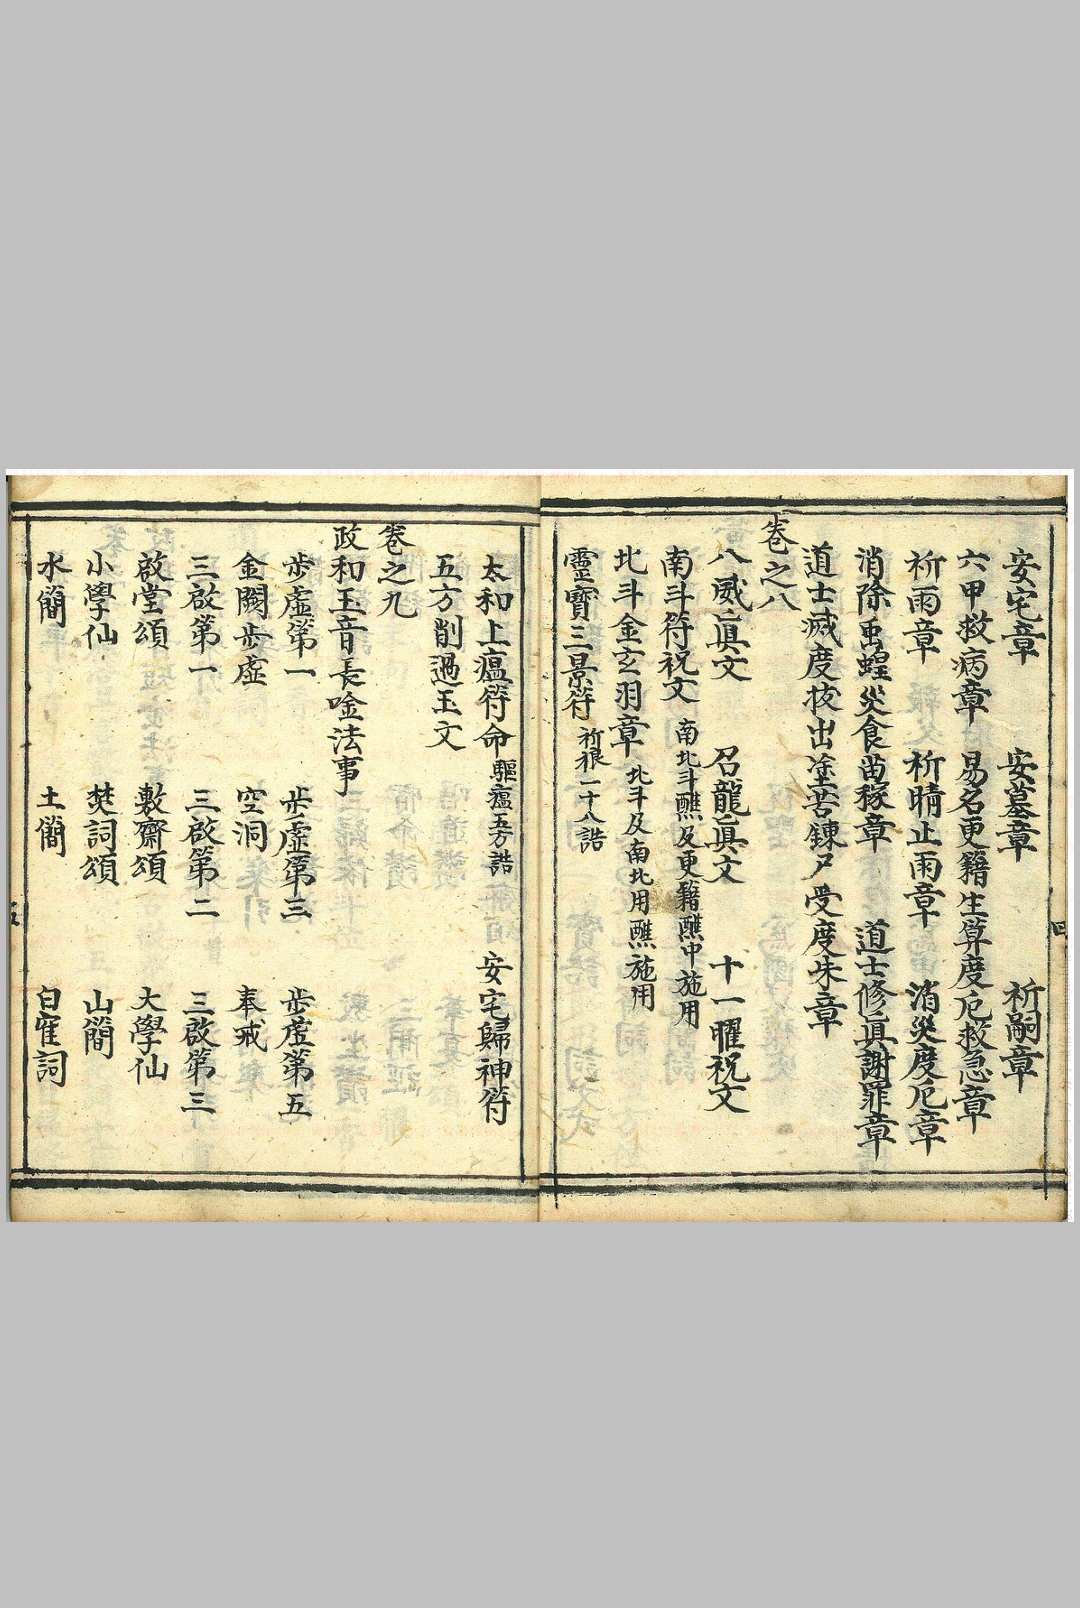 安宅章 安墓章 祈嗣章
六甲救病章 易名更籍生算度厄救急章
祈雨章 祈晴止雨章 消災度厄章
消除虫蝗災食苗稼章 道士修眞謝罪章
道士滅度拔出塗苦鍊尸受度朱章
卷之八
八威眞文 召龍眞文 十一曜祝文
南斗符祝文 南北斗醮及更籍醮中施用
北斗金玄羽章 北斗及南北用醮施用
靈寳三景符 祈禳二十八誥
四
太和上瘟符命 驅瘟五方誥 安宅歸神符
五方削過玉文
卷之九
政和玉音長唫法事
步虛第一 步虛第三 步虛第五
金闕步虛 空洞 奉戒
三啟第一 三啟第二 三啟第三
啟堂頌 敷齋頌 大學仙
小學仙 焚詞頌 山簡
水簡 土簡 白寉詞
五